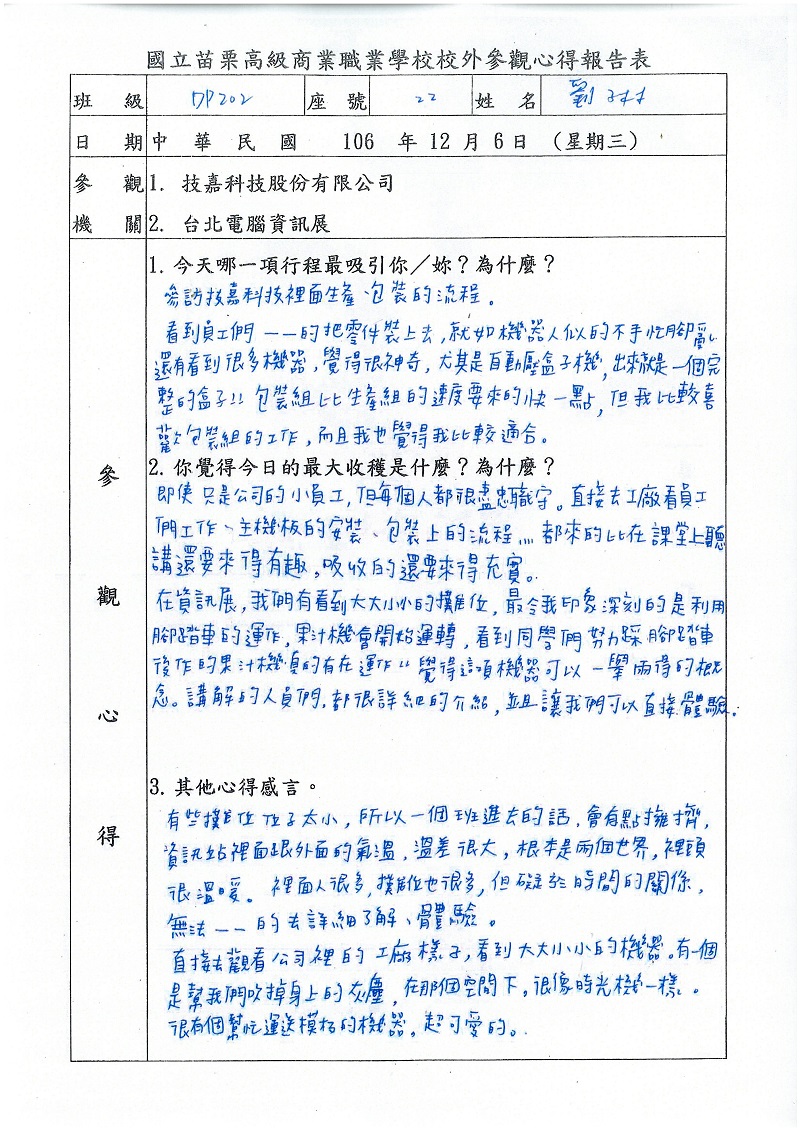 國立苗栗高級商業職業學校校外參觀心得報告表
班級 DP202 座號 22 姓名 劉
日期 中華民國 106 年 12 月 6 日 (星期三)
參觀機關
1. 技嘉科技股份有限公司
2. 台北電腦資訊展
參觀心得
1. 今天哪一項行程最吸引你／妳？為什麼？
參訪技嘉科技裡面生產、包裝的流程。
看到員工們一一的把零件裝上去，就如機器人似的不手忙腳亂。
還有看到很多機器，覺得很神奇，尤其是自動壓盒子機，出來就是一個完
整的盒子!! 包裝組比生產組的速度要來的快一點，但我比較喜
歡包裝組的工作，而且我也覺得我比較適合。
2. 你覺得今日的最大收穫是什麼？為什麼？
即使只是公司的小員工，但每個人都很盡忠職守。直接去工廠看員工
們工作、主機板的安裝、包裝上的流程… 都來的比在課堂上聽
講還要來得有趣，吸收的還要來得充實。
在資訊展，我們有看到大大小小的攤位，最令我印象深刻的是利用
腳踏車的運作，果汁機會開始運轉，看到同學們努力踩腳踏車
後作的果汁機真的有在運作!! 覺得這項機器可以一舉兩得的概
念。講解的人員們，都很詳細的介紹，並且讓我們可以直接體驗。
3. 其他心得感言。
有些攤位位子太小，所以一個班進去的話，會有點擁擠，
資訊站裡面跟外面的氣溫，溫差很大，根本是兩個世界，裡頭
很溫暖。裡面人很多，攤位也很多，但礙於時間的關係，
無法一一的去詳細了解、體驗。
直接去觀看公司裡的工廠樣子，看到大大小小的機器。有一個
是幫我們吹掉身上的灰塵，在那個空間下，很像時光機一樣。
很有個幫忙運送模板的機器，超可愛的。